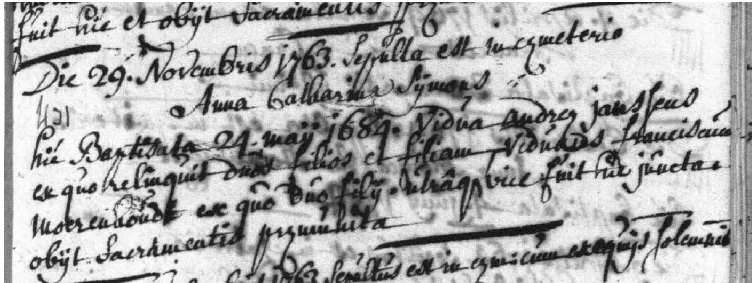 fuit hic et obijt Sacramentis
Die 29. Novembris 1763. Sepulta est in cymeterio
Anna Catharina Symons
421
hic Baptisata 24. maij 1684. Vidua Andreæ Janssens
ex quo relinquit duos filios et filiam Viduus franciscum
moerenhoudt ex quo duo filij. utraque vice fuit hic juncta.
obijt Sacramentis præmunita
1763 Sepultus est in exequijs solemnis